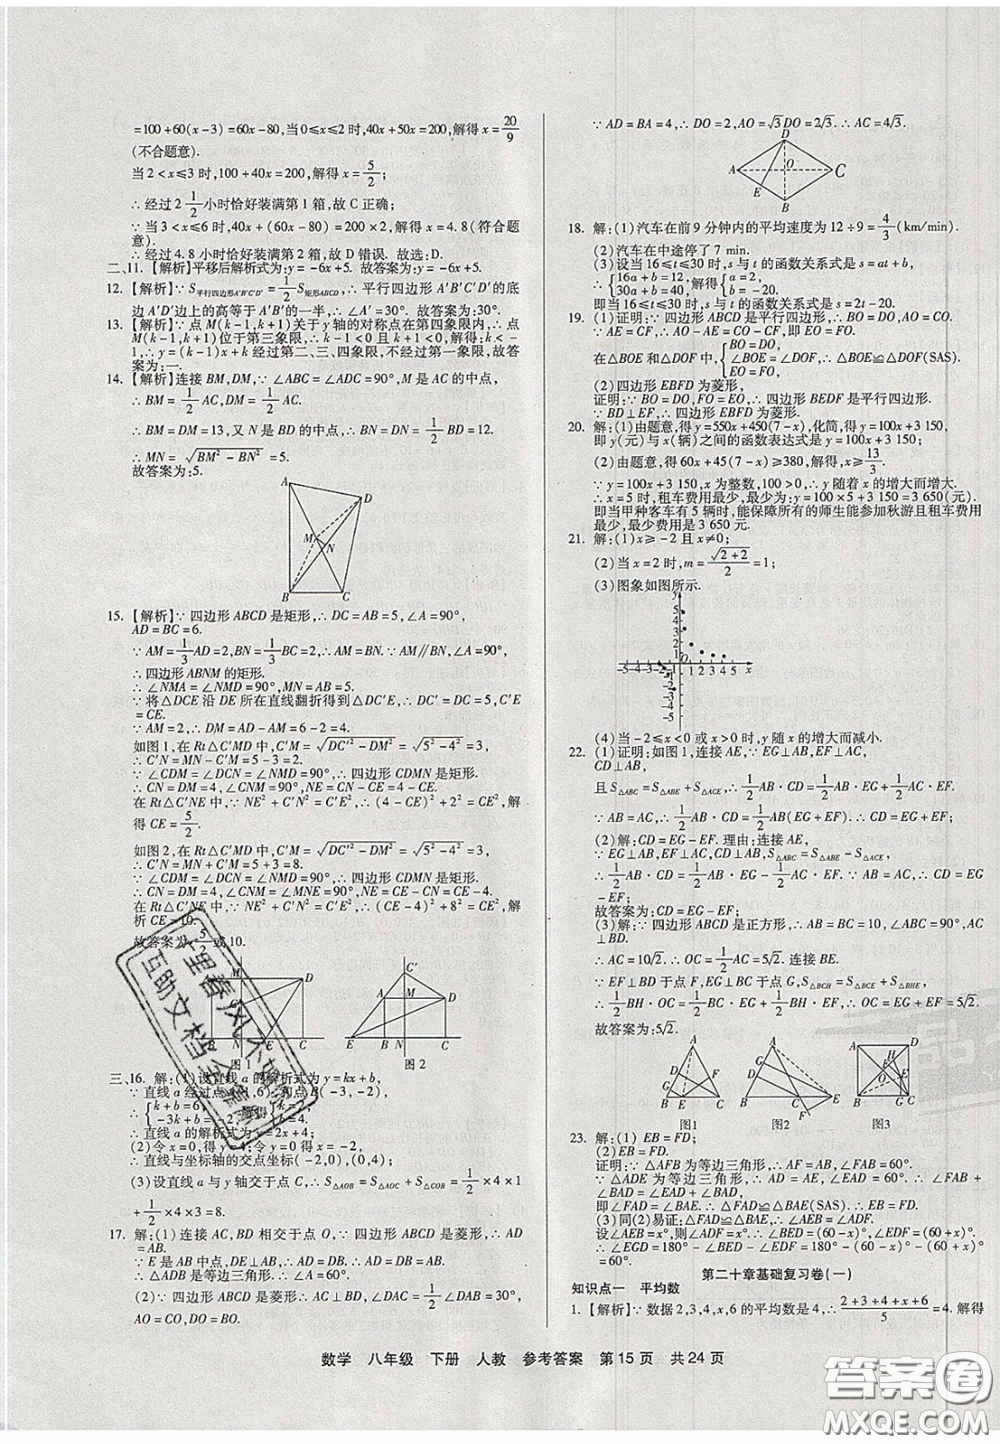 =100+60(x-3)=60x-80,当0≤x≤2时,40x+50x=200,解得x=20/9
(不合题意).
当2<x≤3时,100+40x=200,解得x=5/2;
∴经过2 1/2小时恰好装满第1箱,故C正确;
∵3<x≤6时,40x+(60x-80)=200,解得x=4.8(符合题
意).
∴经过4.8小时恰好装满第2箱,故D错误.故选:D.
二、11.【解析】平移后解析式为:y=-6x+5.故答案为:y=-6x+5.
12.【解析】∵S平行四边形A'B'C'D'=1/2S矩形ABCD,∴平行四边形A'B'C'D'的
底边A'D'边上的高等于A'B'的一半,∴∠A'=30°.故答案为:30°.
13.【解析】∵点M(k-1,k+1)关于y轴的对称点在第四象限内,∴点
M(k-1,k+1)位于第三象限,∴k-1<0且k+1<0,解得:k<-
1,∴y=(k-1)x+k经过第二、三、四象限,不经过第一象限,故答
案为:一.
14.【解析】连接BM,DM,∵∠ABC=∠ADC=90°,M是AC的中点,
∴BM=1/2AC,DM=1/2AC.
∴BM=DM=13,又N是BD的中点,∴BN=DN=1/2BD=12.
∴MN=√BM²-BN²=5.
故答案为:5.
A
D
M
N
B
C
15.【解析】∵四边形ABCD是矩形,∴DC=AB=5,∠A=90°,
AD=BC=6.
∵AM=1/3AD=2,BN=1/3BC=2,∴AM=BN.∵AM∥BN,∠A=90°,
∴四边形ABNM的矩形.
∴∠NMA=∠NMD=90°,MN=AB=5.
∵将△DCE沿DE所在直线翻折得到△DC'E,∴DC'=DC=5,C'E
=CE.
∵AM=2,∴DM=AD-AM=6-2=4.
如图1,在Rt△C'MD中,C'M=√DC'²-DM²=√5²-4²=3,
∴C'N=MN-C'M=5-3=2.
∵∠CDM=∠DCN=∠NMD=90°,∴四边形CDMN是矩形.
∴CN=DM=4,∠CNM=90°,NE=CN-CE=4-CE.
在Rt△C'NE中,∵NE²+C'N²=C'E²,∴(4-CE)²+2²=CE²,解
得CE=5/2.
如图2,在Rt△C'MD中,C'M=√DC'²-DM²=√5²-4²=3,
∴C'N=MN+C'M=5+3=8.
∵∠CDM=∠DCN=∠NMD=90°,∴四边形CDMN是矩形.
∴CN=DM=4,∠CNM=∠MNE=90°,NE=CE-CN=CE-4.
在Rt△C'NE中,∵NE²+C'N²=C'E²,∴(CE-4)²+8²=CE²,解
析CE=10.
故答案为:5/2或10.
M D
E C
图1
C'
A M D
E B N C
图2
三、16.解:(1)设直线a的解析式为y=kx+b,
∵直线a经过点A(1,6),和点B(-3,-2),
∴{k+b=6, -3k+b=-2, 解得{
∴直线a的解析式为y=2x+4;
(2)令x=0,得y=4;令y=0,得x=-2,
∴直线与坐标轴的交点坐标(-2,0),(0,4);
(3)设直线a与y轴交于点C,∴S△AOB=S△AOC+S△BOC=1/2×4×1
+1/2×4×3=8.
17.解:(1)连接AC,BD相交于点O,∵四边形ABCD是菱形,∴AD
=AB.
∵E是AB中点,DE⊥AB,∴AD=DB.∴AD=DB=AB.
∴△ADB是等边三角形.∴∠ABC=120°.
(2)∵四边形ABCD是菱形,∴AC⊥BD,∠DAC=1/2∠DAB=30°,
AO=CO,DO=BO.
∵AD=BA=4,∴DO=2,AO=√3DO=2√3.∴AC=4√3.
D
A
O
C
E
B
18.解:(1)汽车在前9分钟内的平均速度为12÷9=4/3(km/min).
(2)汽车在中途停了7 min.
(3)设当16≤t≤30时,s与t的函数关系式是s=at+b,
{16a+b=12, 30a+b=40.∴解得{a=2, b=-20,
即当16≤t≤30时,s与t的函数关系式是s=2t-20.
19.(1)证明:∵四边形ABCD是平行四边形,∴BO=DO,AO=CO.
∵AE=CF,∴AO-AE=CO-CF,即EO=FO.
在△BOE和△DOF中,{BO=DO, ∠BOE=∠DOF, EO=FO,∴△BOE≌△DOF(SAS).
(2)四边形EBFD为菱形.
证明:∵BO=DO,FO=EO,∴四边形BEDF是平行四边形.
∵BD⊥EF,∴四边形EBFD为菱形.
20.解:(1)由题意,得y=550x+450(7-x),化简,得y=100x+3 150,
即y(元)与x(辆)之间的函数表达式是y=100x+3 150.
(2)由题意,得60x+45(7-x)≥380,解得,x≥13/3.
∵y=100x+3 150,x为整数,100>0,∴y随着x的增大而增大.
∴x=5时,租车费用最少,最少为:y=100×5+3 150=3 650(元).
即当甲种客车有5辆时,能保障所有的师生能参加秋游且租车费用
最少,最少费用是3 650元.
21.解:(1)x≥-2且x≠0;
(2)当x=2时,m=√2+2/2=1;
(3)图象如图所示.
y
5
4
3
2
1
-5-4-3-2-1 O 1 2 3 4 5 x
-1
-2
-3
-4
-5
(4)当-2≤x<0或x>0时,y随x的增大而减小.
22.(1)证明:如图1,连接AE,∵EG⊥AB,EF⊥AC,
CD⊥AB,
且S△ABC=S△ABE+S△ACE,∴1/2AB·CD=1/2AB·EG+1/2AC·EF.
∵AB=AC,∴1/2AB·CD=1/2AB(EG+EF).∴CD=EG+EF.
(2)解:CD=EG-EF.理由:连接AE,
∵EG⊥AB,EF⊥AC,CD⊥AB,S△ABC=S△ABE-S△ACE,
∴1/2AB·CD=1/2AB·EG-1/2AC·EF.∵AB=AC,∴CD=EG-
EF.
故答案为:CD=EG-EF;
(3)解:∵四边形ABCD是正方形,∴AB=BC=10,∠ABC=90°,
∴AC=10√2.∴OC=1/2AC=5√2.∵BE=BC=10,OC⊥BE,
∵EF⊥BD于点F,EG⊥BC于点G,S△BCH+S△CHE=S△BCE+S△BHE,
∴1/2BH·OC=1/2BH·EF+1/2BC·EG,∴OC=EG+EF=5√2.
故答案为:5√2.
图1
图2
图3
23.解:(1)EB=FD;
(2)EB=FD.
证明:∵△AFB为等边三角形,∴AF=AB,∠FAB=60°.
∵△ADE为等边三角形,∴AD=AE,∠EAD=60°.∴∠FAB+
∠BAD=∠EAD+∠BAD,即∠FAD=∠BAE.
∴△FAD≌△BAE(SAS).∴EB=FD.
(3)同(2)易证:△FAD≌△BAE,∴∠AEB=∠ADF.
设∠AEB=x°,则∠ADF=x°.∴∠BED=(60-x)°,∠EDF=(60+x)°.
∴∠EGD=180°-∠BED-∠EDF=180°-(60-x)°-(60+x)°=60°.
第二十章基础复习卷(一)
知识点一 平均数
1.【解析】∵数据2,3,4,x,6的平均数是4,∴2+3+4+x+6/5=4.解得
数学 八年级 下册 人教 参考答案 第15页 共24页
十里春风不如你
互助文档全掌握
答案圈
MXQE.COM